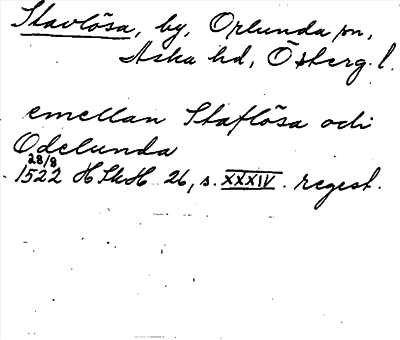 Stavlösa, by, Orlunda sn,
Aska hd, Österg. l.
emellan Staflösa och
Odelunda
28/8
1522 HSkH 26, s. XXXIV. regest.